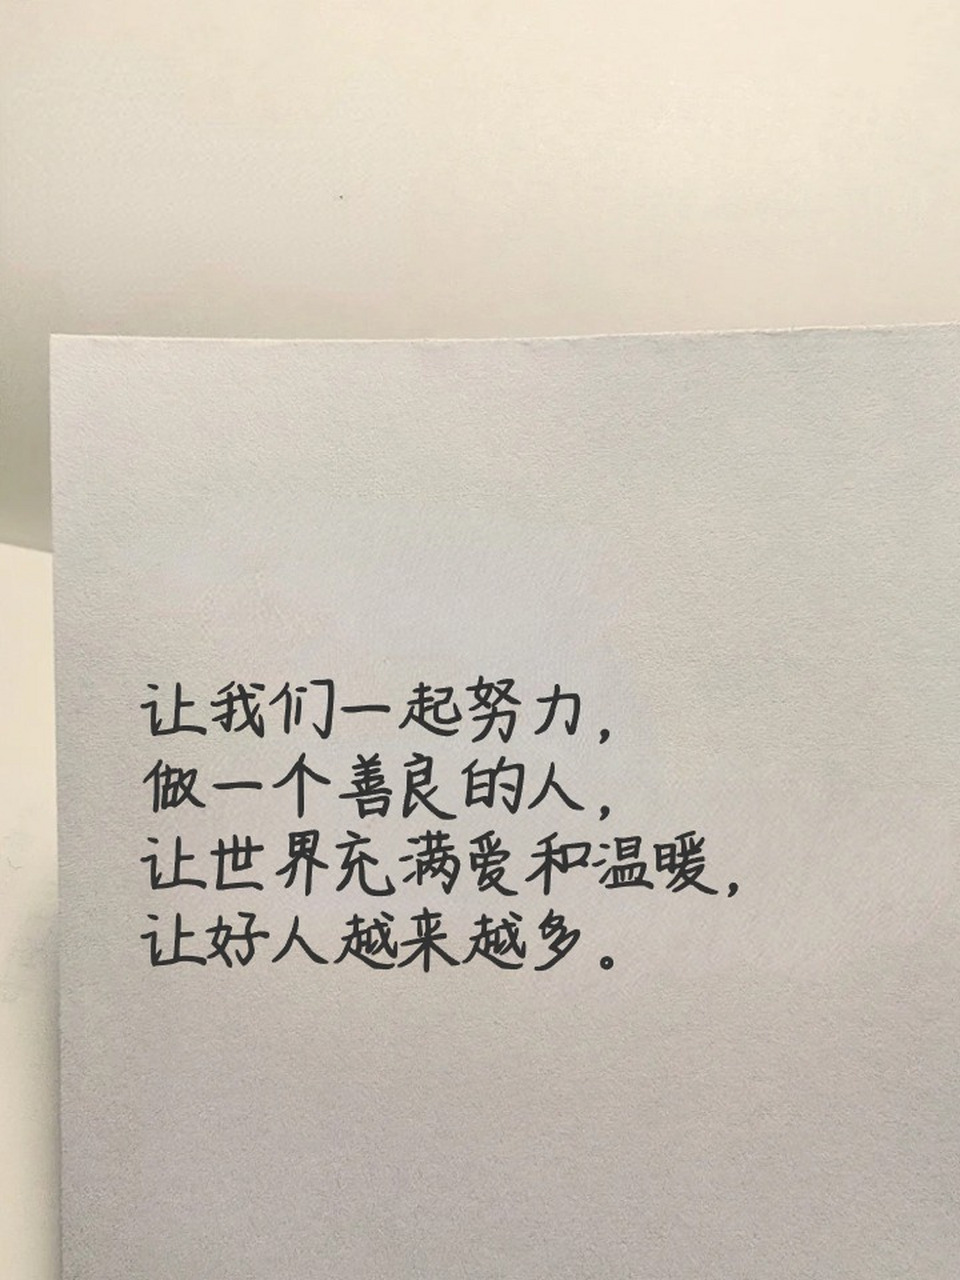 让我们一起努力，
做一个善良的人，
让世界充满爱和温暖，
让好人越来越多。